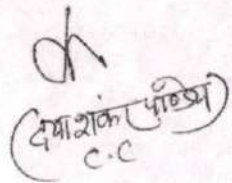 (दयाशंकर पाण्डेय)
C.C